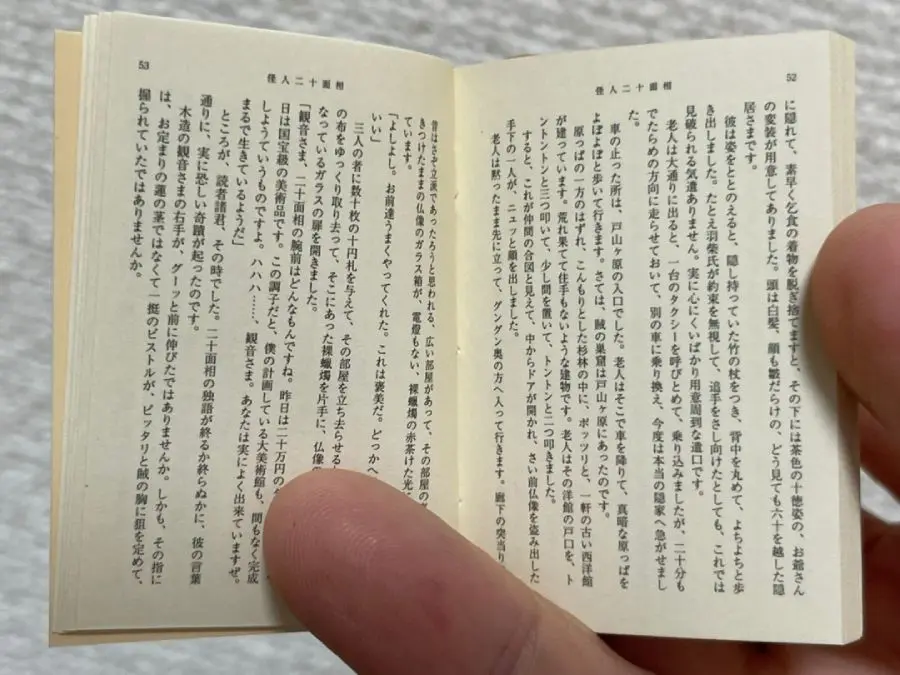 52
怪人二十面相
に隠れて、素早く乞食の着物を脱ぎ捨てますと、その下には茶色の十徳姿の、お爺さん
の変装が用意してありました。頭は白髪、顔も皺だらけの、どう見ても六十を越した隠
居さまです。
彼は姿をととのえると、隠し持っていた竹の杖をつき、背中を丸めて、よちよちと歩
き出しました。たとえ羽柴氏が約束を無視して、追手をさし向けたとしても、これでは
見破られる気遣ありません。実に心にくいばかり用意周到な遣口です。
老人は大通りに出ると、一台のタクシーを呼びとめて、乗り込みましたが、二十分も
でたらめの方向に走らせておいて、別の車に乗り換え、今度は本当の隠家へ急がせまし
た。
車の止った所は、戸山ヶ原の入口でした。老人はそこで車を降りて、真暗な原っぱを
よぼよぼと歩いて行きます。さては、賊の巣窟は戸山ヶ原にあったのです。
原っぱの一方のはずれ、こんもりとした杉林の中に、ポッツリと、一軒の古い西洋館
が建っています。荒れ果てて住手もないような建物です。老人はその洋館の戸口を、ト
ントントンと三つ叩いて、少し間を置いて、トントンと二つ叩きました。
すると、これが仲間の合図と見えて、中からドアが開かれ、さい前仏像を盗み出した
手下の一人が、ニュッと顔を出しました。
老人は黙ったまま先に立って、グングン奥の方へ入って行きます。廊下の突当り
53
怪人二十面相
昔はさぞ立派であったろうと思われる、広い部屋があって、その部屋の
きつけたままの仏像のガラス箱が、電燈もない、裸蠟燭の赤茶けた光に
ています。
「よしよし。お前達うまくやってくれた。これは褒美だ。どっかへ
いい」
三人の者に数十枚の十円札を与えて、その部屋を立ち去らせる
の布をゆっくり取り去って、そこにあった裸蠟燭を片手に、仏像の
なっているガラスの扉を開きました。
「観音さま、二十面相の腕前はどんなもんですね。昨日は二十万円の
日は国宝級の美術品です。この調子だと、僕の計画している大美術館も、間もなく完成
しようていうものですよ。ハハハ……、観音さま。あなたは実によく出来ていますぜ。
まるで生きているようだ」
ところが、読者諸君、その時でした。二十面相の独語が終るか終らぬかに、彼の言葉
通りに、実に恐しい奇蹟が起ったのです。
木造の観音さまの右手が、グーッと前に伸びたではありませんか。しかも、その指に
は、お定まりの蓮の茎ではなくて一挺のピストルが、ピッタリと賊の胸に狙を定めて、
握られていたではありませんか。